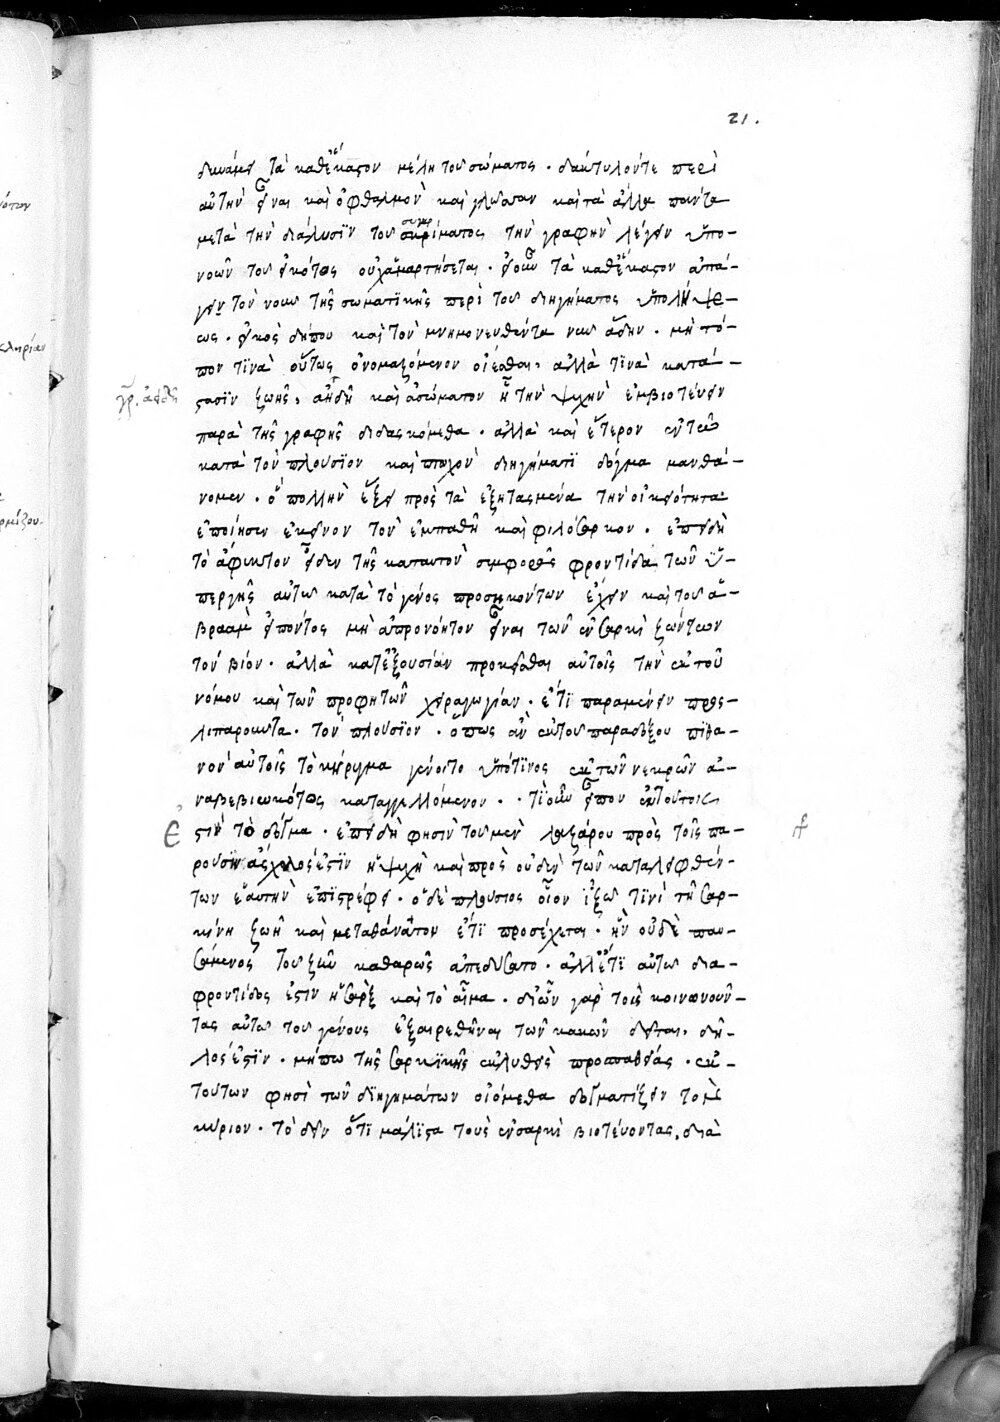 21.
δυνάμει τὰ καθέκαστον μέλη τοῦ σώματος. δάκτυλόντε περὶ
αὐτὴν εἶναι καὶ ὀφθαλμὸν καὶ γλῶσσαν καὶ τὰ ἄλλα πάντα
μετὰ τὴν διάλυσϊν τοῦ συγκρίματος τὴν γραφὴν λέγειν ὑπο-
νοῶν τοῦ εἰκότος οὐχ ἁμαρτήσεται. εἰ οὖν τὰ καθέκαστον ἀπά-
γει τὸν νοῦν τῆς σωματϊκῆς περὶ τοῦ διηγήματος ὑπολήψε-
ως. εἰκὸς δήπου καὶ τὸν μνημονευθέντα νῦν ᾅδην. μὴ τό-
πον τϊνὰ οὕτως ὀνομαζόμενον οἴεσθαι, ἀλλὰ τϊνὰ κατά-
γρ. ἀειδῆ
στασϊν ζωῆς, ἀηδῆ καὶ ἀσώματον ᾗ τὴν ψυχὴν ἐμβιοτεύειν
παρὰ τῆς γραφῆς διδασκόμεθα. ἀλλὰ καὶ ἕτερον ἐν τῷ
κατὰ τὸν πλούσϊον καὶ πτωχὸν διηγήματϊ δόγμα μανθά-
νομεν. ὃ πολλὴν ἕξει πρὸς τὰ ἐξητασμένα τὴν οἰκειότητα
ἐποίησεν ἐκεῖνον τὸν ἐμπαθῆ καὶ φιλόσαρκον. ἐπειδὴ
τὸ ἄφυκτον εἶδεν τῆς κατ᾽ αὐτὸν συμφορᾶς φροντίδα τῶν ὑ-
περγῆς αὐτῷ κατὰ τὸ γένος προσηκόντων ἔχειν καὶ τοῦ ἀ-
βραὰμ εἰπόντος μὴ ἀπρονόητον εἶναι τῶν ἐν σαρκὶ ζώντων
τὸν βίον. ἀλλὰ κατ᾽ ἐξουσίαν προκεῖσθαι αὐτοῖς τὴν ἐκ τοῦ
νόμου καὶ τῶν προφητῶν χειραγωγίαν. ἔτϊ παραμένειν προς-
λιπαροῦντα. τὸν πλούσϊον. ὅπως ἂν ἐκ τοῦ παραδόξου πιθα-
νὸν αὐτοῖς τὸ κήρυγμα γένοιτο ὑπό τϊνος ἐκ τῶν νεκρῶν ἀ-
ναβεβιωκότος καταγγελλόμενον. . τί οὖν εἶπον ἐν τούτοις
στὶν τὸ δόγμα. ἐπειδὴ φησὶν τοῦ μὲν λαζάρου πρὸς τοῖς πα-
ροῦσϊν ἄσχολός ἐστϊν ἡ ψυχὴ καὶ πρὸς οὐδὲν τῶν καταλειφθέν-
των ἑαυτὴν ἐπϊστρέφει. ὁ δὲ πλούσιος οἷον ἰξῷ τϊνὶ τῇ σαρ-
κίνῃ ζωῇ καὶ μετὰ θάνατον ἔτϊ προσέχεται. ἣν οὐδὲ παυ-
σάμενος τοῦ ζῆν καθαρῶς ἀπεδύσατο. ἀλλ᾽ ἔτϊ αὐτῷ δια
φροντίδος ἐστὶν ἡ σὰρξ καὶ τὸ αἷμα. δι᾽ ὧν γὰρ τοὺς κοινωνοῦν-
τας αὐτῷ τοῦ γένους ἐξαιρεθῆναι τῶν κακῶν δεῖται. δῆ-
λός ἐστϊν. μήπω τῆς σαρκϊκῆς ἐκλυθεὶς προσπαθείας. ἐκ
τούτων φησὶ τῶν διηγημάτων οἰόμεθα δογματίζειν τὸν
κύριον. τὸ δεῖν ὅτϊ μάλϊστα τοὺς ἐν σαρκὶ βιοτεύοντας, διὰ